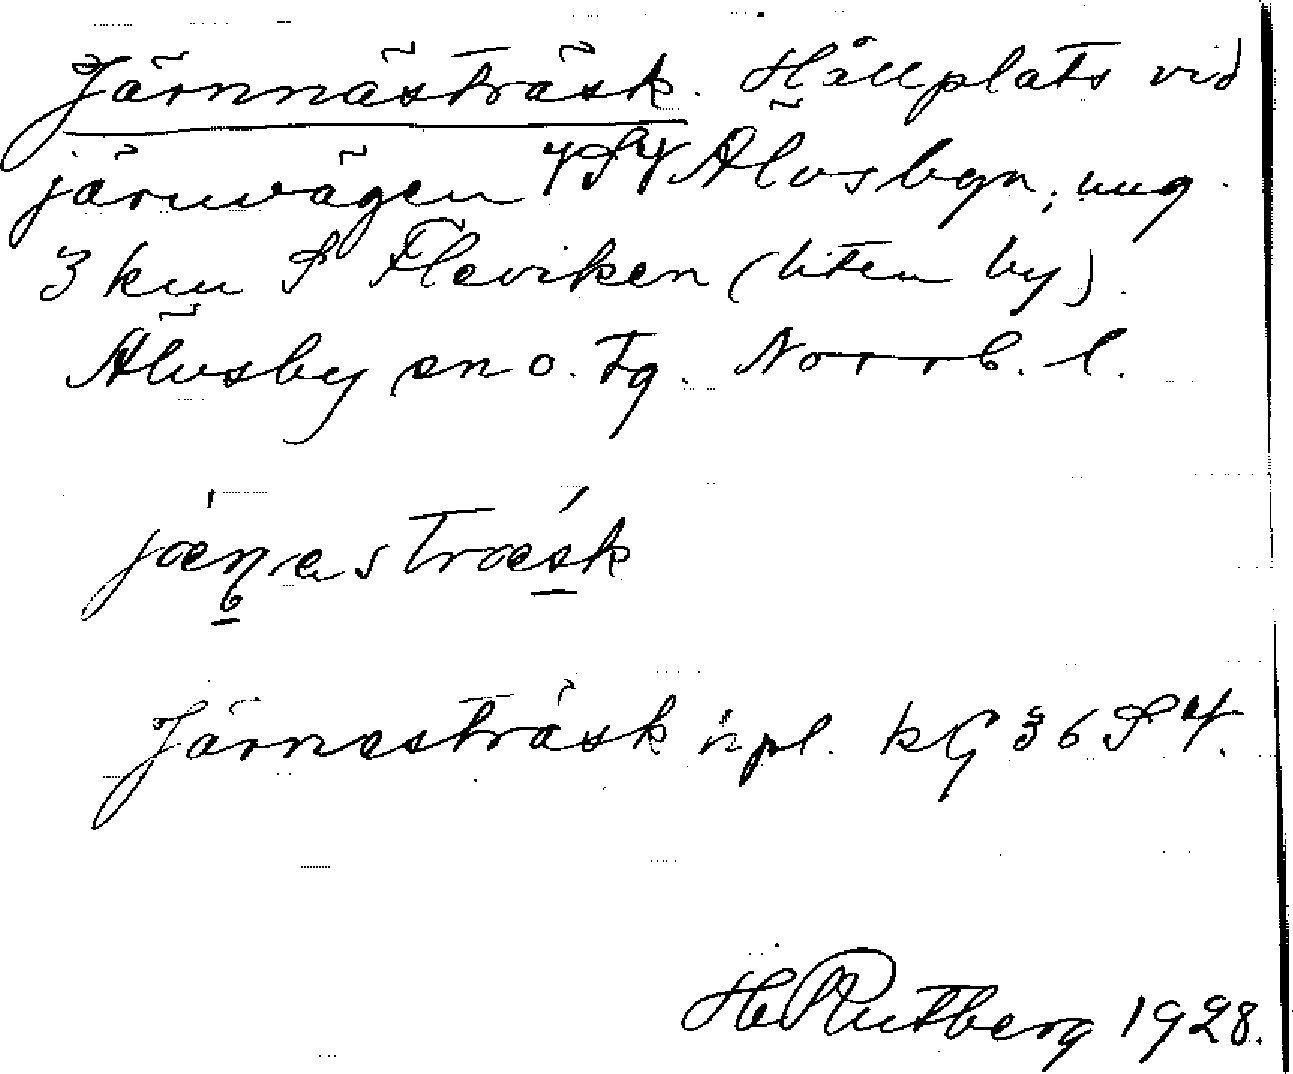 Järnnästräsk. Hållplats vid
järnvägen VSV Älvsbyn, ung.
3 km S Fleviken (liten by).
Älvsby sn o. tg. Norrb. l.
Järnesträsk hpl. kG 36 SV.
H Rutberg 1928.